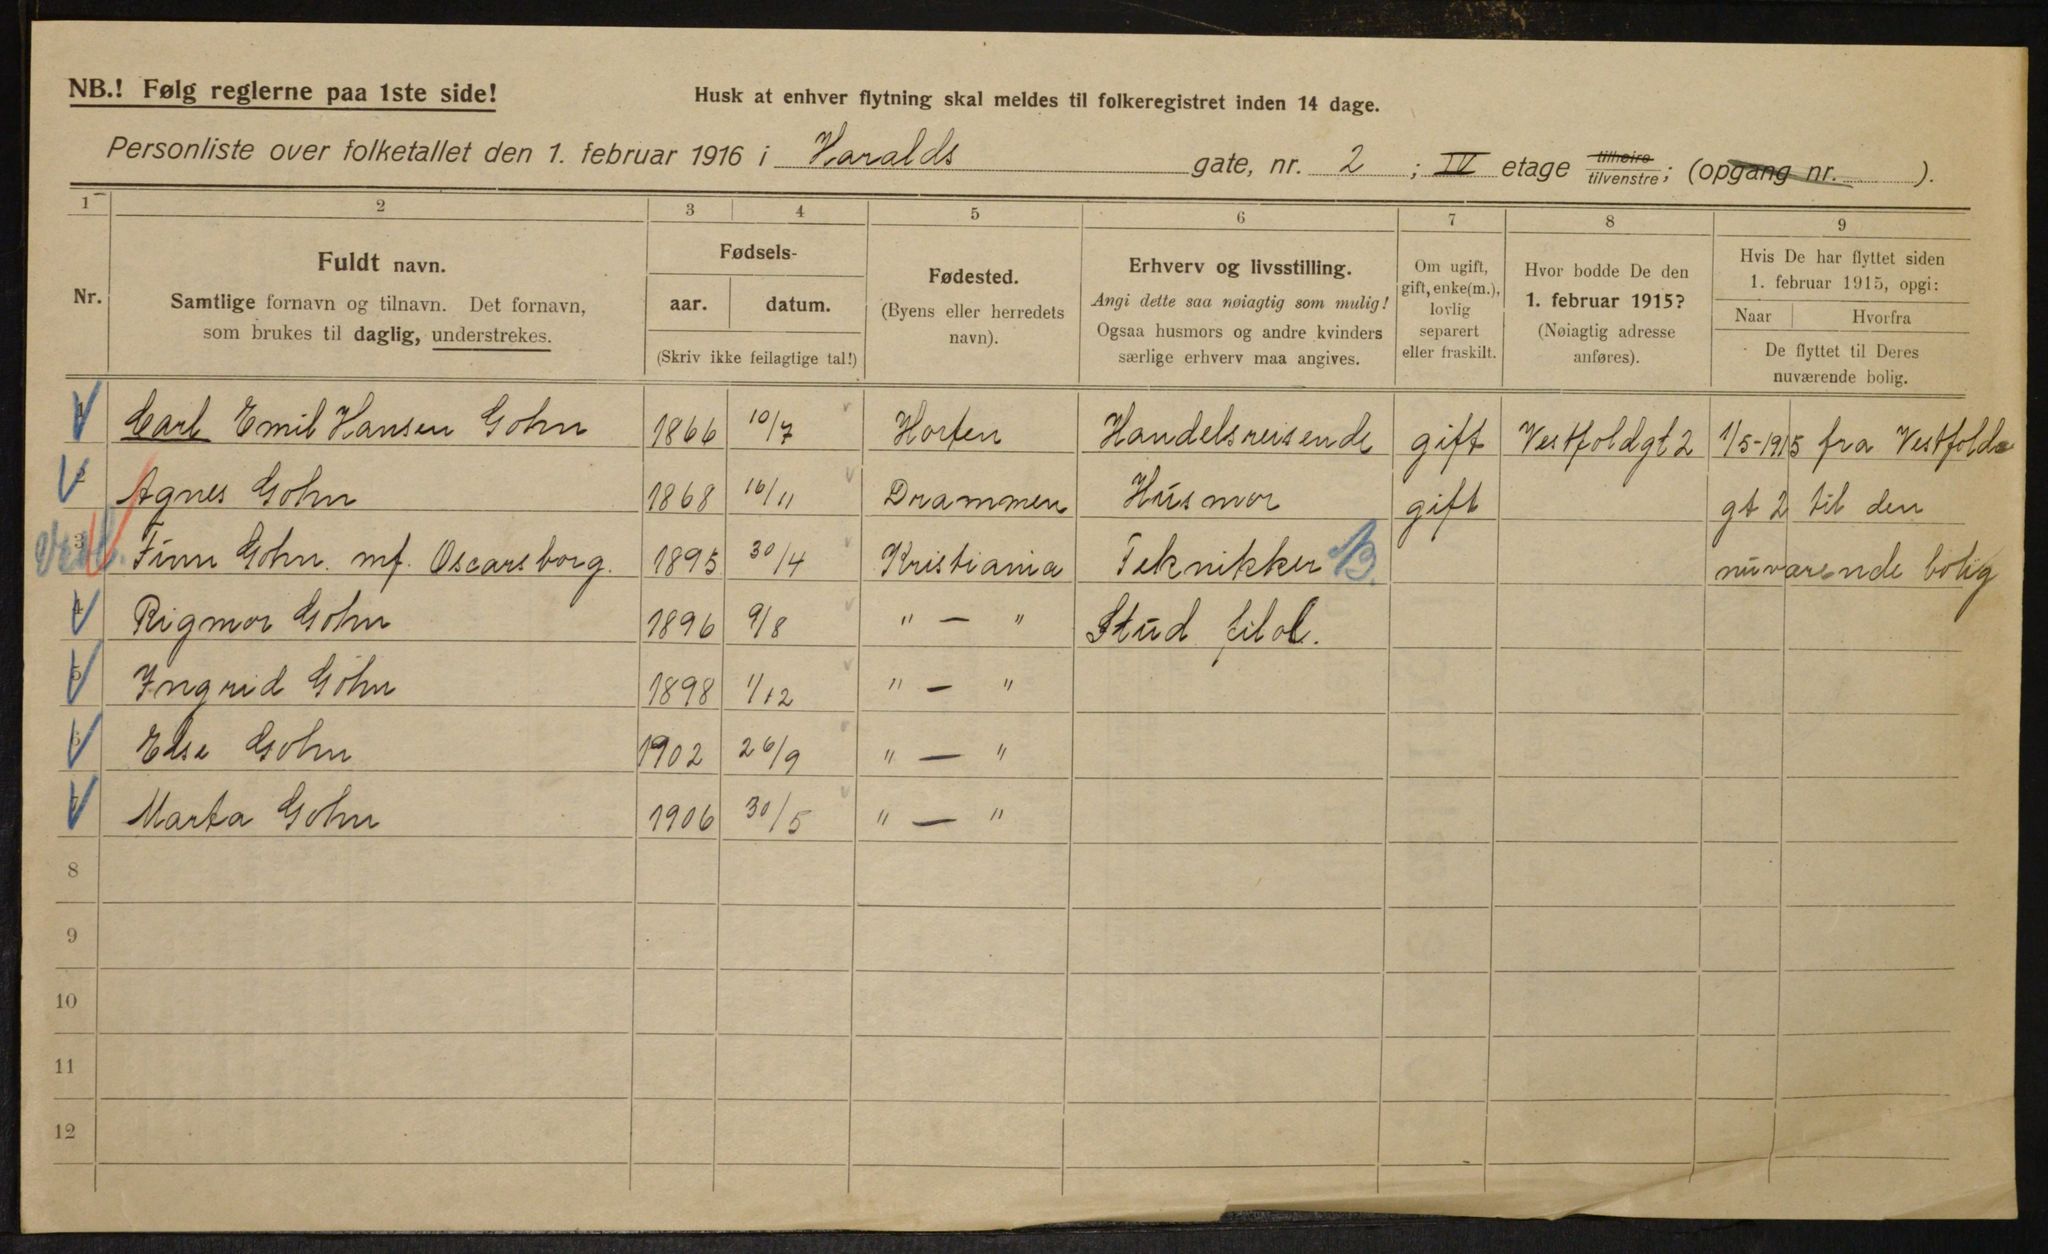 NB.! Følg reglerne paa 1ste side!
Husk at enhver flytning skal meldes til folkeregistret inden 14 dage.
Personliste over folketallet den 1. februar 1916 i Haralds gate, nr. 2 ; IV etage tilhøire tilvenstre; (opgang nr. ).
1 2 3 4 5 6 7 8 9
Nr.
Fuldt navn.
Samtlige fornavn og tilnavn. Det fornavn,
som brukes til daglig, understrekes.
Fødsels-
aar. datum.
(Skriv ikke feilagtige tal!)
Fødested.
(Byens eller herredets
navn).
Erhverv og livsstilling.
Angi dette saa nøiagtig som mulig!
Ogsaa husmors og andre kvinders
særlige erhverv maa angives.
Om ugift,
gift, enke(m.),
lovlig
separert
eller fraskilt.
Hvor bodde De den
1. februar 1915?
(Nøiagtig adresse
anføres).
Hvis De har flyttet siden
1. februar 1915, opgi:
Naar Hvorfra
De flyttet til Deres
nuværende bolig.
1 Carl Emil Hansen Gohn 1866 10/7 Horten Handelsreisende gift Vestfoldgt 2 1/5-1915 fra Vestfold
2 Agnes Gohn 1868 16/11 Drammen Husmor gift gt 2 til den
3 Finn Gohn. mf. Oscarsborg. 1895 30/4 Kristiania Teknikker B. nuvarende bolig
4 Rigmor Gohn 1896 9/8 " — " Stud filol.
5 Ingrid Gohn 1898 1/12 " — "
6 Else Gohn 1902 26/9 " — "
7 Marta Gohn 1906 30/5 " — "
8
9
10
11
12